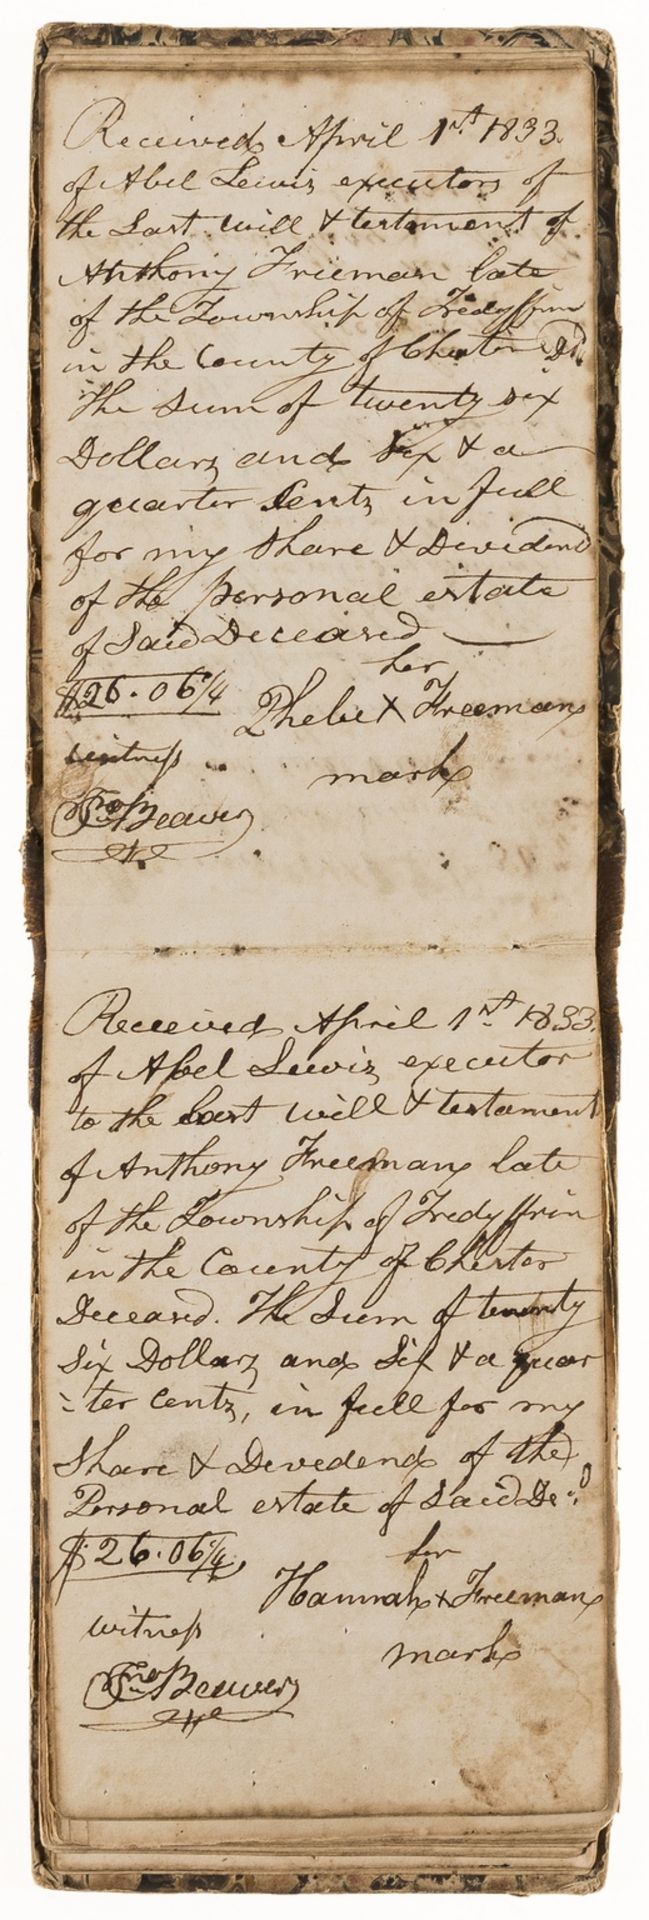 Received April 1st 1833.
of Abel Lewis executors of
the Last will & testament of
Anthony Freeman late
of the Township of Tredyffrin
in the County of Chester Dd.
The Sum of twenty six
Dollars and Six & a
quarter Cents in full
for my Share & Dividend
of the personal estate
of Said Deceased
her
$26.06 1/4 Phebe X Freeman
witness mark
Jno Beaver
Received April 1st 1833.
of Abel Lewis executor
to the last will & testament
of Anthony Freeman late
of the Township of Tredyffrin
in the County of Chester
Deceasd. The Sum of twenty
Six Dollars and Six & a quar
=ter Cents, in full for my
Share & Devedend of the
Personal estate of Said Dec.d
$26.06 1/4 her
Hannah x Freeman
witness mark
Jno Beaver